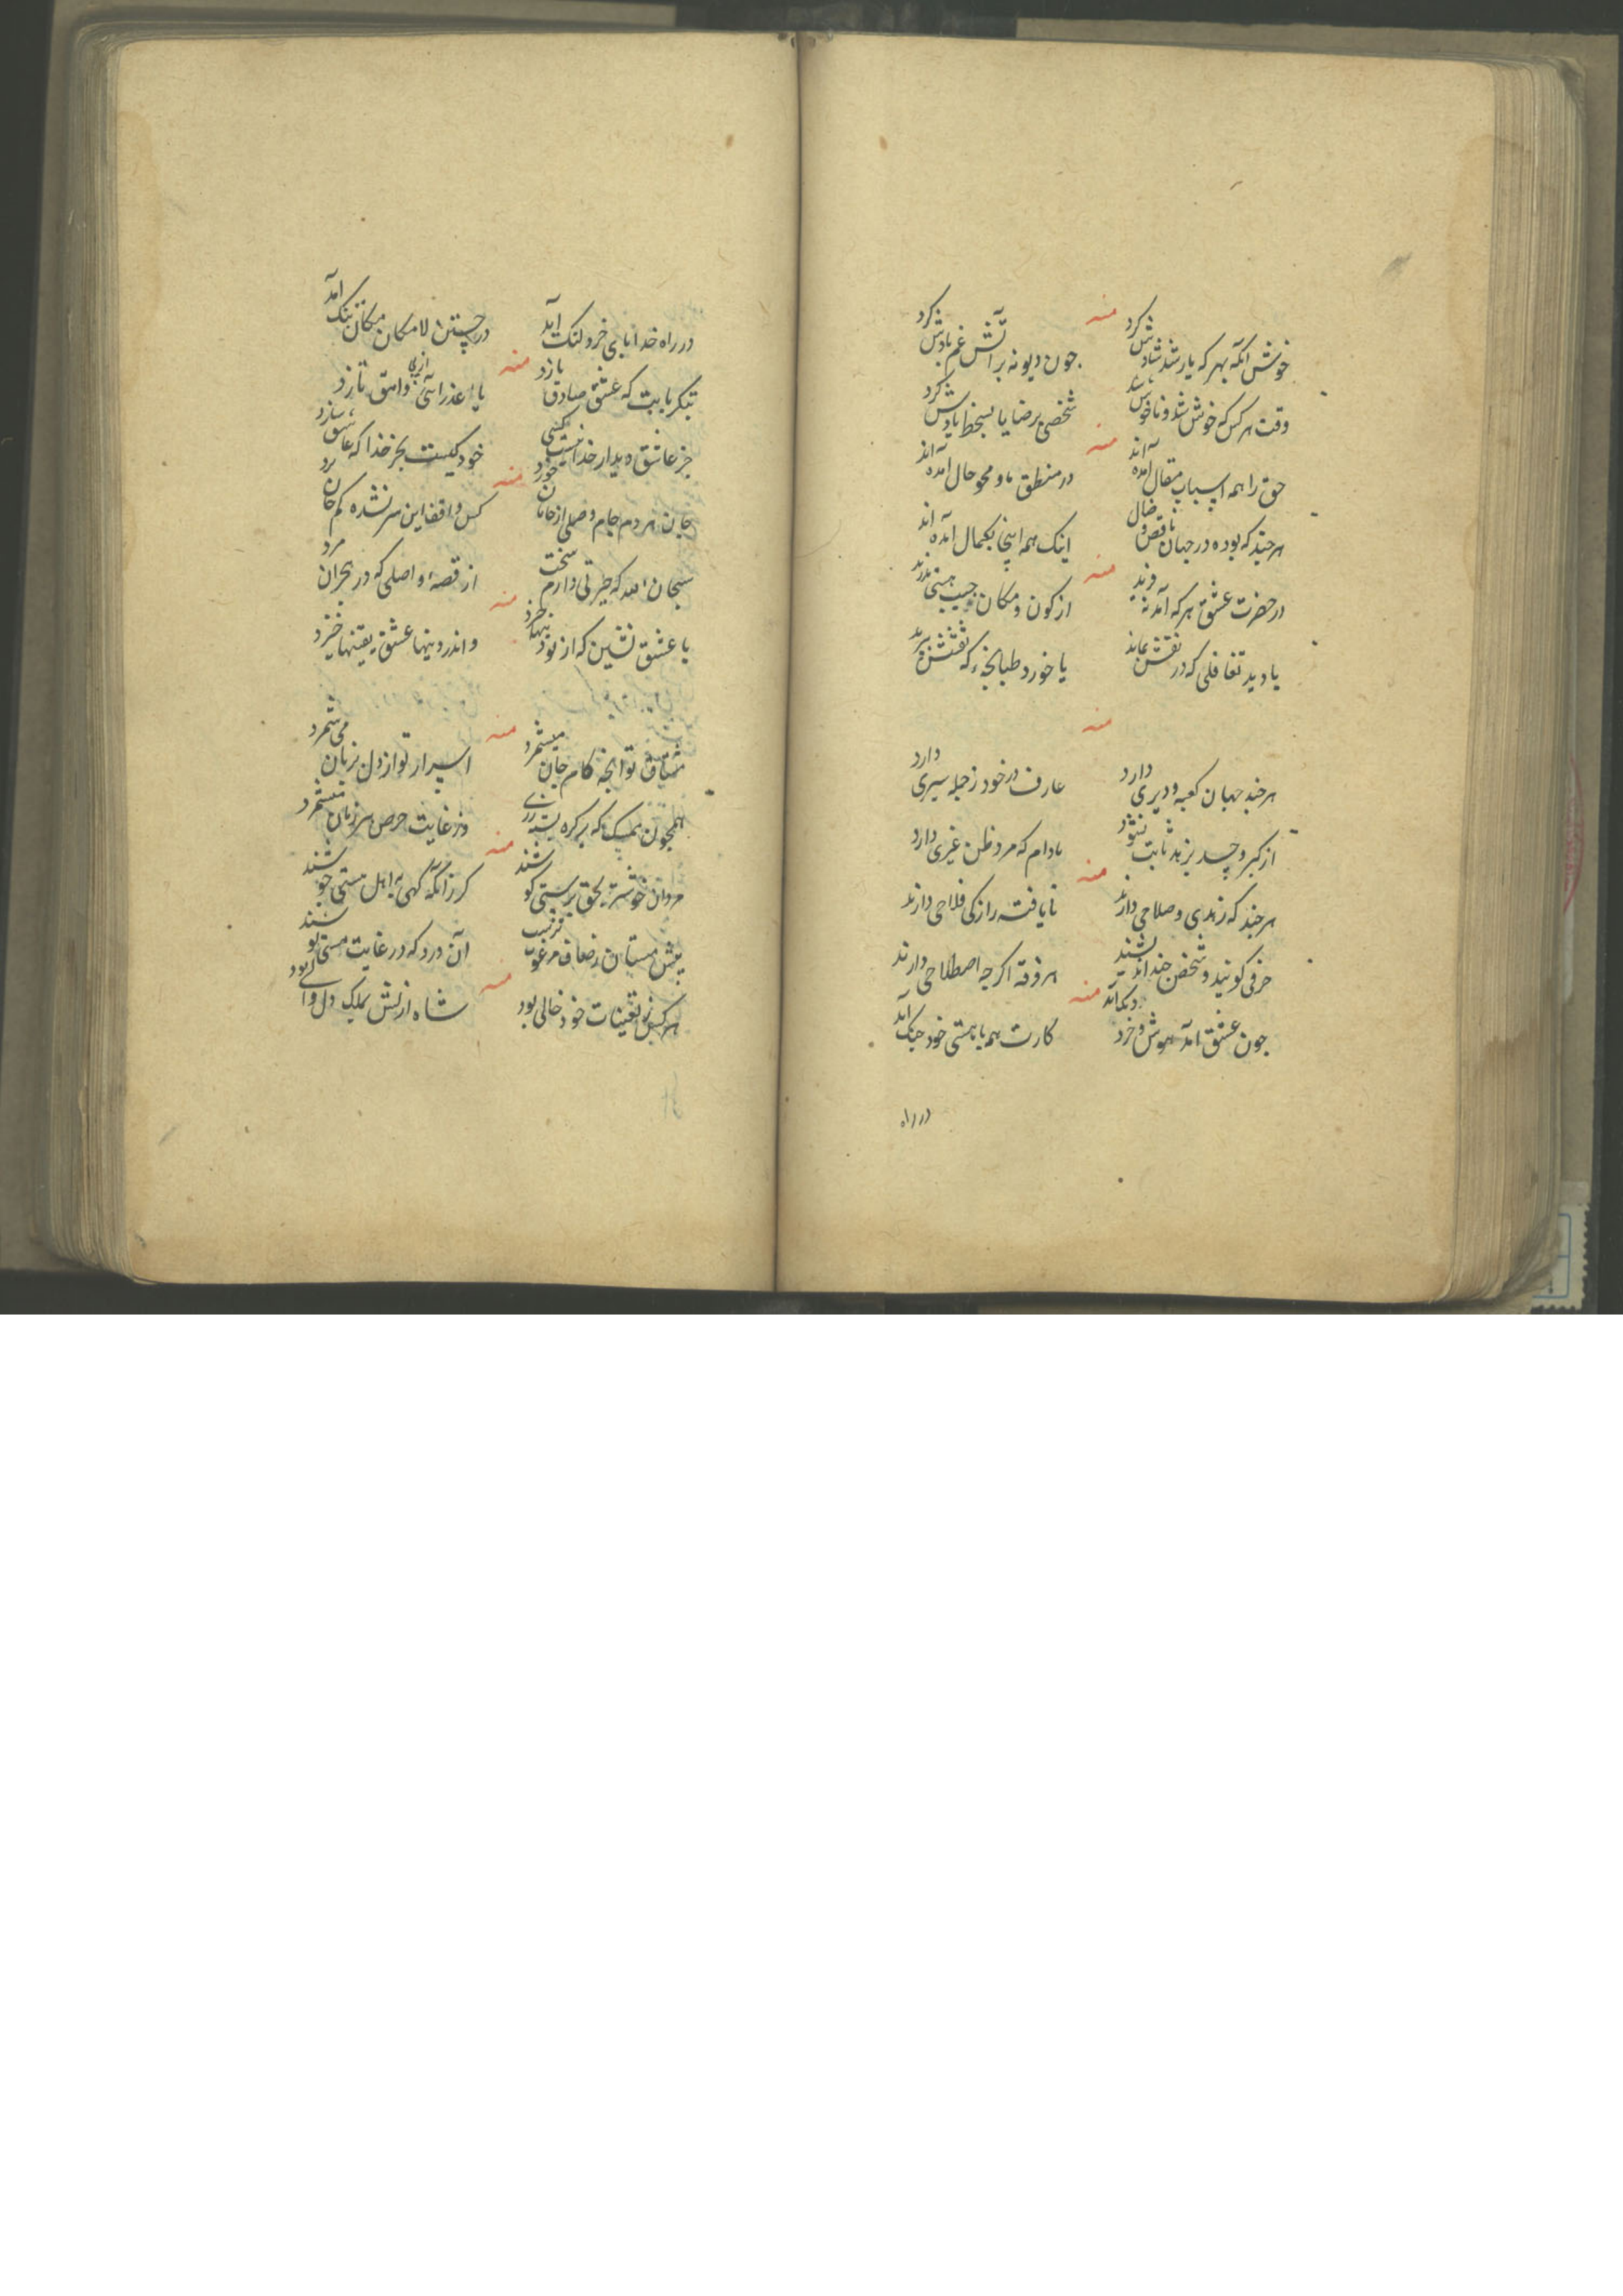 منه
خوش آنکه بهر که یار شد شادش کرد
چون دیو نه بر آتش غم بادش کرد
وقت هر کس که خوش شد و ناخوش شد
شخصی برضا یا بسخط یادش کرد
منه
حق را همه اسباب مقال آمده‌اند
در منطق ما و محو حال آمده‌اند
هر چند که بوده در جهان ناقص و ضال
اینک همه اینجا بکمال آمده‌اند
منه
در حضرت عشق هر که آمد نه
از کون و مکان
یا دید تغافلی که در نقش نماند
یا خورد طبانچهٔ که نقشش
منه
هر چند جهان کعبه و دیری دارد
عارف در خود ز جمله سیری دارد
از کبر و حسد بزهد ثابت نشود
مادام که مرد ظن غیری دارد
منه
هر چند که زهدی و صلاحی دارند
نایافته راز کی فلاحی دارند
حرفی گویند و شخص چند
هر فرقه اگرچه اصطلاحی دارند
منه
چون عشق آمد هوش و خرد
کارت همه با هستی خود جنگ آمد
در راه
در راه خدا پای خرد لنگ آمد
در جستن لامکان مکان تنگ آمد
منه
که عشق صادق بازد
یا عذرائی وامق تازد
جز عاشق دیدار خدا نیست کسی
خود کیست بجز خدا که عاشق سازد
منه
جان هر دم جام وصلی از جانان خورد
کس واقف این سر نشده کم جان برد
سبحان الله که حیرتی دارم سخت
از قصهٔ واصلی که در هجران مرد
منه
با عشق نشین که از تو
و اندر دینها عشق یقینها خیزد
منه
مشتاق تو آنچه کام جان میشمرد
اسرار تو از دل بزبان می شمرد
همچون ممسک که بر کره بسته زری
وز غایت حرص هر زمان میشمرد
منه
مردان خوشتر بحق پرستی کوشند
کر زانکه کهی به اهل مستی جوشند
پیش مستان ز صاف مرغوب‌ترست
آن درد که در غایت مستی نوشند
منه
هر کس ز تعینات خود خالی بود
شاه ازلش بملک دل والی بود